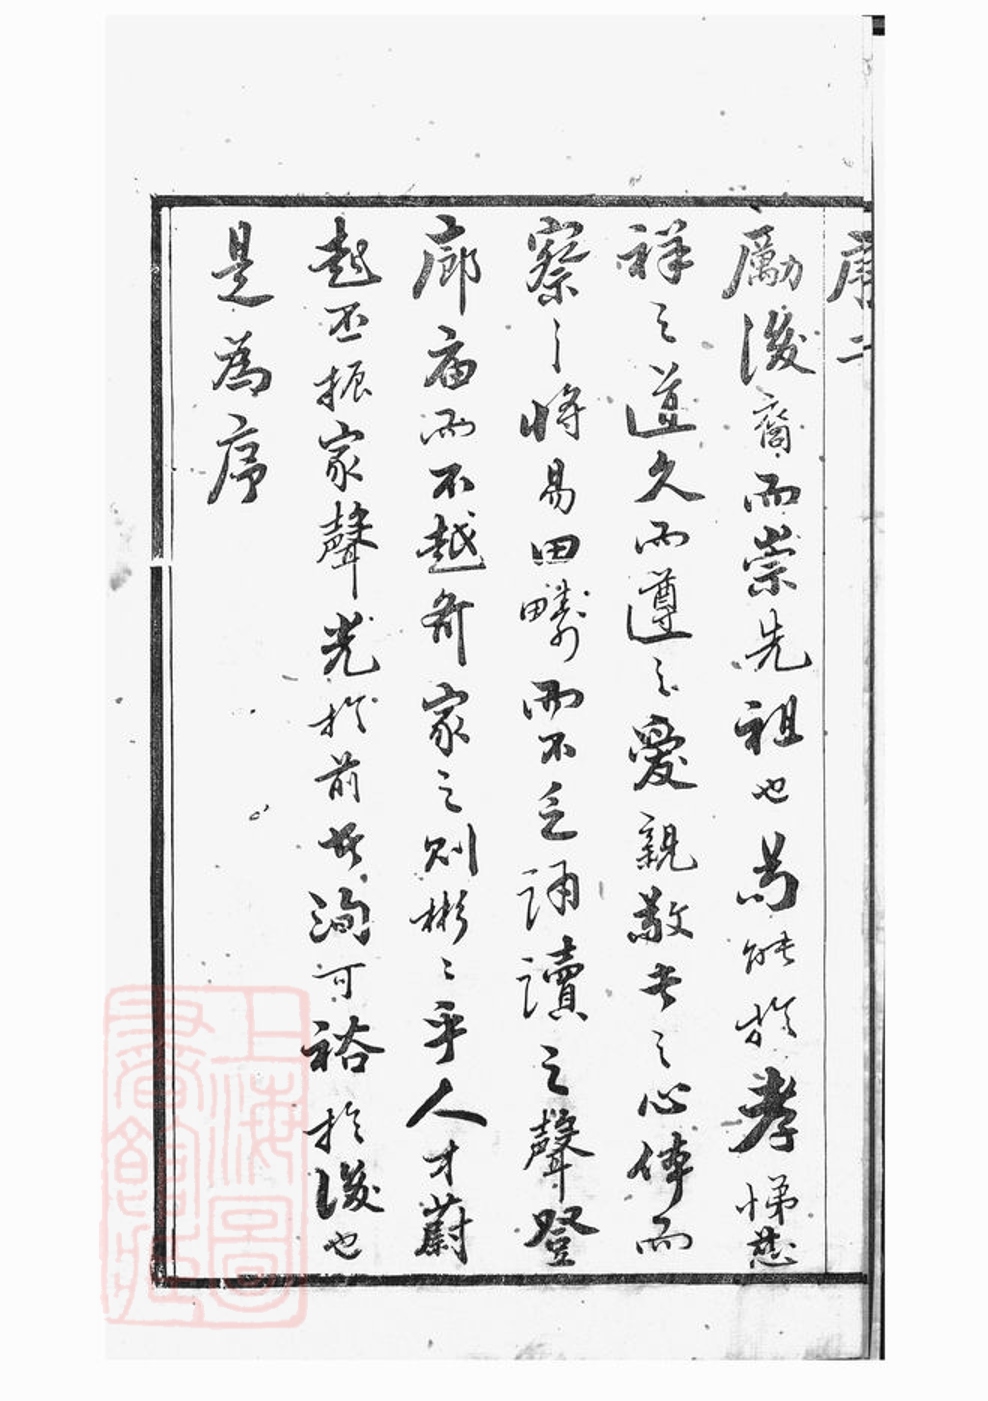 勵後裔而崇先祖也苟能於孝悌慈
祥之道久而遵之愛親敬長之心体而
察之將易田疇而不乏誦讀之聲登
廊庙而不越齐家之则彬〻乎人才蔚
起丕振家聲光於前者洵可裕於後也
是為序
上海圖
書館藏